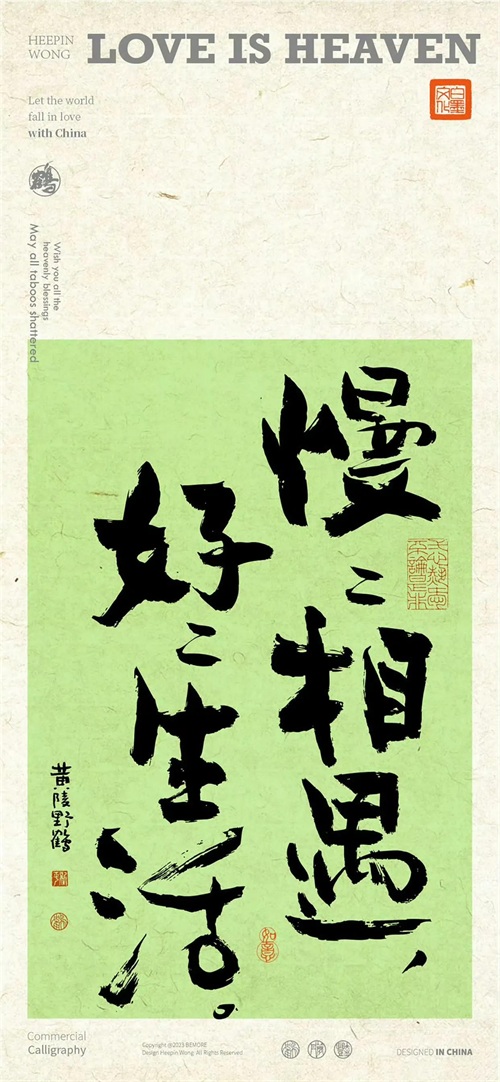 HEEPIN
WONG
LOVE IS HEAVEN
Let the world
fall in love
with China
白墨
文化
鹤
Wish you all the
heavenly blessings
May all taboos shattered
慢〻相遇，
好〻生活。
黄陵野鹤
如意
Commercial
Calligraphy
Copyright @2023 BEMORE
Design Heepin Wong All Rights Reserved
DESIGNED IN CHINA